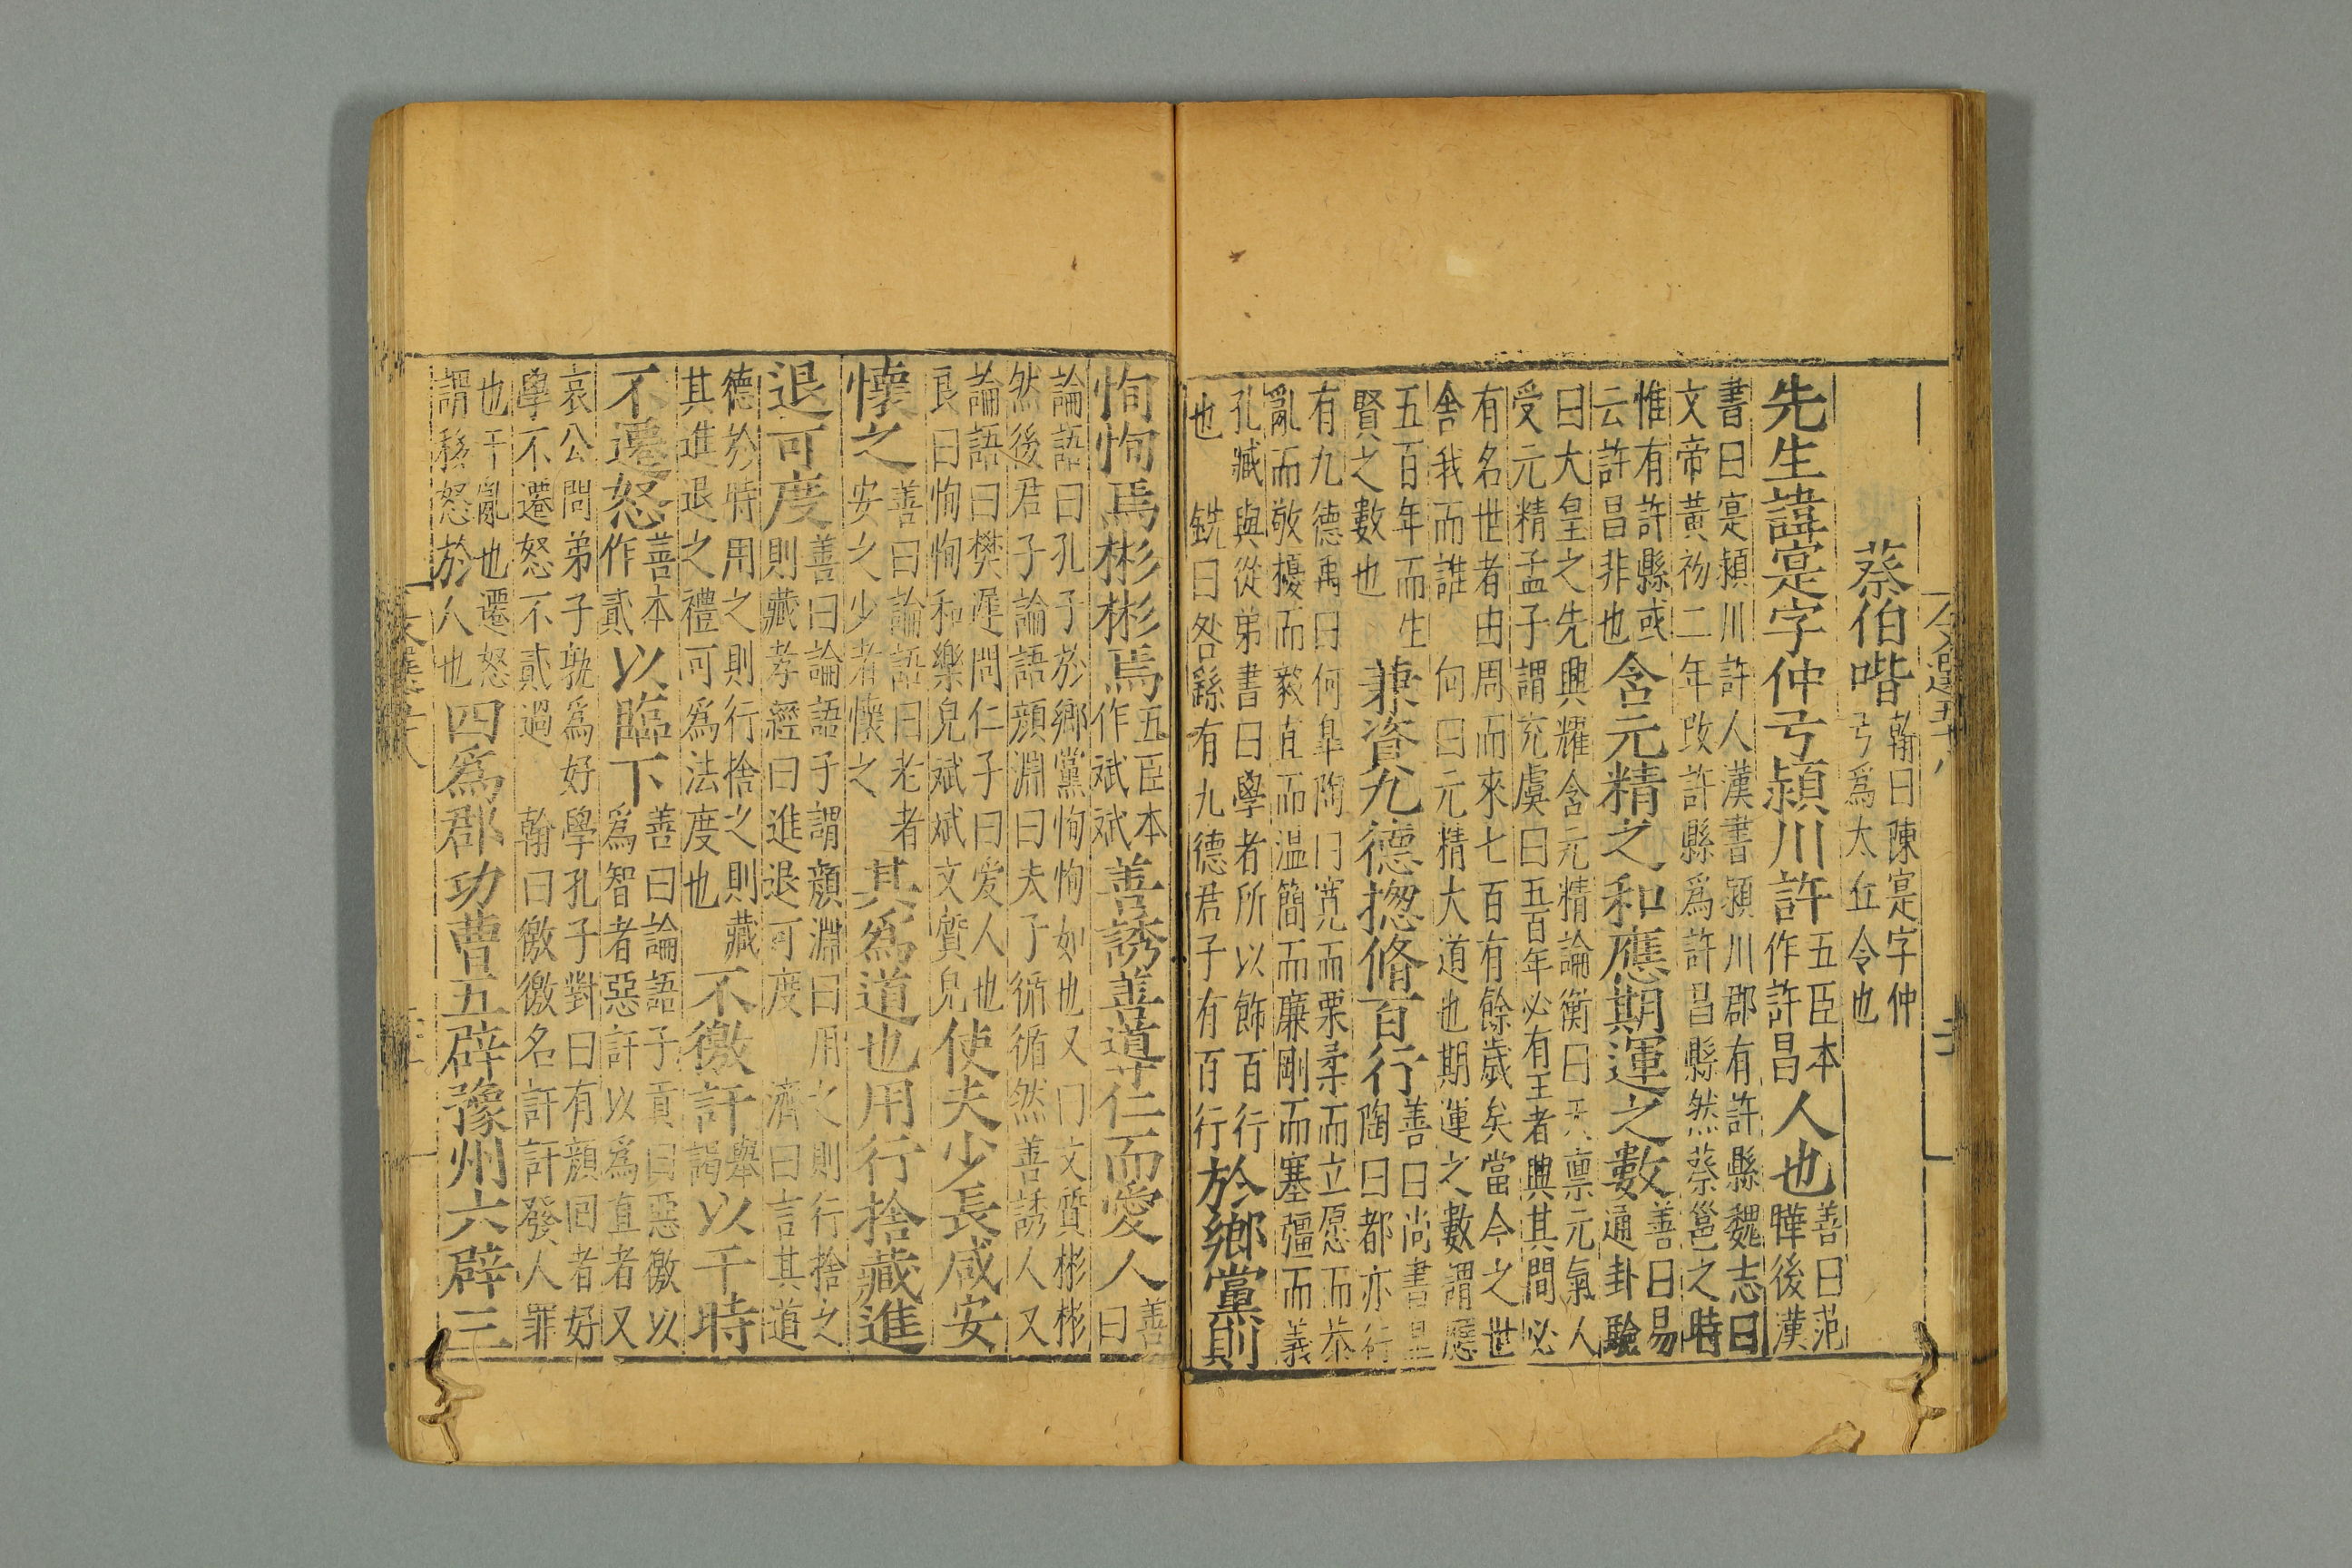 蔡伯喈 翰曰陳寔字仲
弓爲太丘令也
先生諱寔字仲弓潁川許 五臣本
作許昌 人也 善曰范
曄後漢
書曰寔潁川許人漢書潁川郡有許縣魏志曰
文帝黃初二年改許縣爲許昌縣然蔡邕之時
惟有許縣或
云許昌非也 含元精之和應期運之數 善曰易
通卦驗
曰大皇之先興耀含元精論衡曰天禀元氣人
受元精孟子謂充虞曰五百年必有王者興其間必
有名世者由周而來七百有餘歲矣當今之世
舍我而誰 向曰元精大道也期運之數謂應
五百年而生
賢之數也 兼資九德揔脩百行 善曰尚書皐
陶曰都亦行
有九德禹曰何皐陶曰寬而栗柔而立愿而恭
亂而敬擾而毅直而温簡而廉剛而塞彊而義
孔臧與從弟書曰學者所以飾百行
也 銑曰咎繇有九德君子有百行 於鄉黨則
恂恂焉彬彬焉 五臣本
作斌斌 善誘善導仁而愛人 善
曰
論語曰孔子於鄉黨恂恂如也又曰文質彬彬
然後君子論語顔淵曰夫子循循然善誘人又
論語曰樊遲問仁子曰愛人也
良曰恂恂和樂皃斌斌文質皃 使夫少長咸安
懷之 善曰論語曰老者
安之少者懷之 其爲道也用行捨藏進
退可度 善曰論語子謂顔淵曰用之則行捨之
則藏孝經曰進退可度 濟曰言其道
德於時用之則行捨之則藏
其進退之禮可爲法度也 不徼訐 舉
謁 以干時
不遷怒 善本
作貳 以臨下 善曰論語子貢曰惡徼以
爲智者惡訐以爲直者又
哀公問弟子孰爲好學孔子對曰有顔回者好
學不遷怒不貳過 翰曰徼徼名訐訐發人罪
也干亂也遷怒
謂移怒於人也 四爲郡功曹五辟豫州六辟三